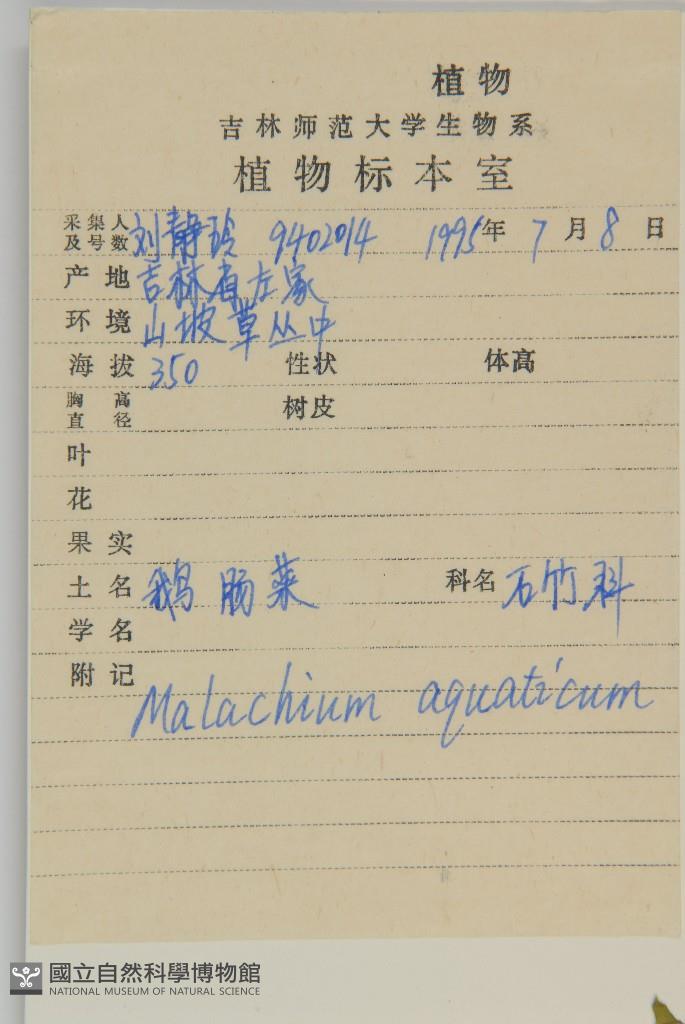 植物
吉林师范大学生物系
植物标本室
采集人及号数 刘静玲 9402014 1995年7月8日
产地 吉林省左家
环境 山坡草丛中
海拔 350 性状 体高
胸高直径 树皮
叶
花
果实
土名 鹅肠菜 科名 石竹科
学名
附记
Malachium aquaticum
國立自然科學博物館
NATIONAL MUSEUM OF NATURAL SCIENCE